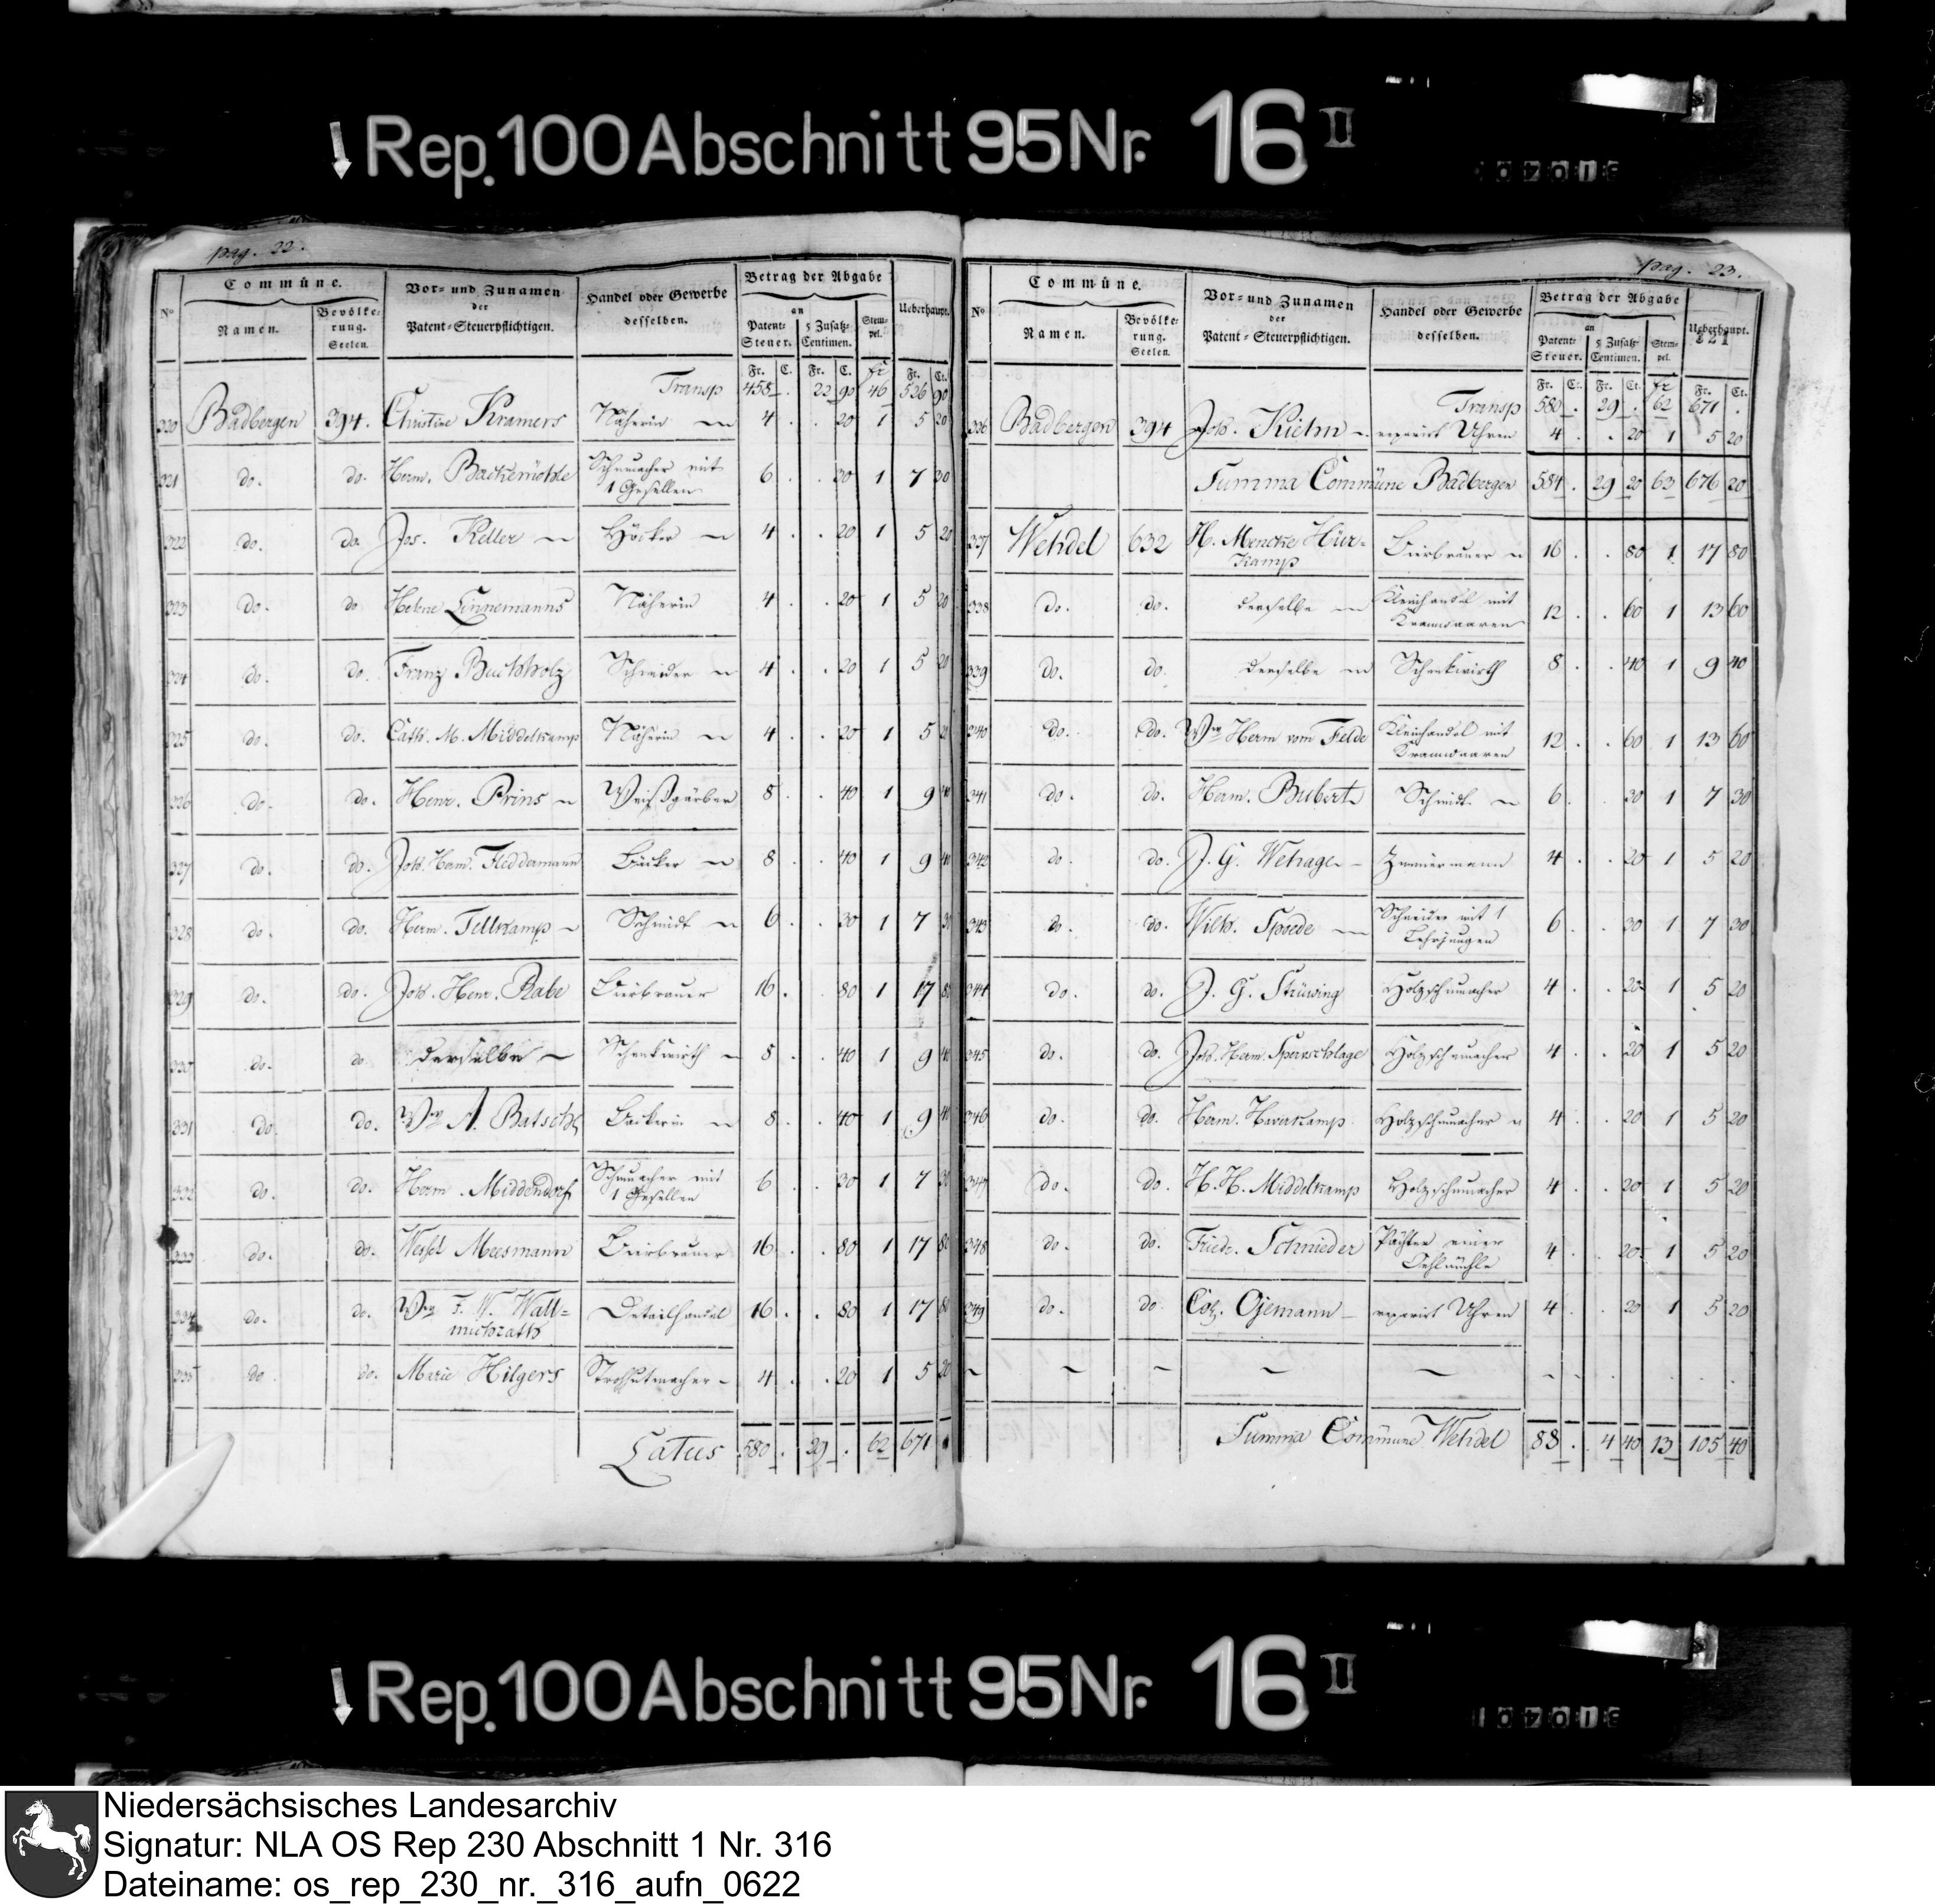 Rep. 100 Abschnitt 95 Nr. 16 II
pag. 22.
No Commüne. Vor- und Zunamen der Patent-Steuerpflichtigen. Handel oder Gewerbe desselben. Betrag der Abgabe Ueberhaupt.
Namen. Bevölkerung. Seelen. an Patent-Steuer. 5 Zusatz-Centimen. Stempel.
Fr. C. Fr. C. Fr Fr. Ct.
Transp 458 . 22 90 46 526 90
320 Badbergen 394. Christine Kramers Näherin 4 . . 20 1 5 20
321 do. do. Herm. Backemöhle Schumacher mit 1 Gesellen 6 . . 30 1 7 30
322 do. do. Jos. Keller Höcker 4 . . 20 1 5 20
323 do. do Helene Linnemanns Näherin 4 . . 20 1 5 20
324 do. do. Franz Buchholz Schneider 4 . . 20 1 5 20
325 do. do. Cath. M. Middelkamp Näherin 4 . . 20 1 5 20
326 do. do. Henr. Prins Weißgärber 8 . . 40 1 9 40
327 do. do. Joh. Herm. Fleddermann Bäcker 8 . . 40 1 9 40
328 do. do. Herm. Tellkamp Schmidt 6 . . 30 1 7 30
329 do. do. Joh. Henr. Rabe Bierbrauer 16 . . 80 1 17 80
330 do. do. derselbe Schenkwirth 8 . . 40 1 9 40
331 do. do. Wwe A. Batsche Bäckerin 8 . . 40 1 9 40
332 do. do. Herm. Middendorf Schumacher mit 1 Gesellen 6 . . 30 1 7 30
333 do. do. Wessel Meesmann Bierbrauer 16 . . 80 1 17 80
334 do. do. Wwe F. W. Wall= michrath Detailhandel 16 . . 80 1 17 80
335 do. do. Marie Hilgers Strohhutmacher 4 . . 20 1 5 20
Latus 580 . 29 . 62 671 .
pag. 23.
No Commüne. Vor- und Zunamen der Patent-Steuerpflichtigen. Handel oder Gewerbe desselben. Betrag der Abgabe Ueberhaupt.
221
Namen. Bevölkerung. Seelen. an Patent-Steuer. 5 Zusatz-Centimen. Stempel.
Fr. Ct. Fr. Ct. Fr Fr. Ct.
Transp 580 . 29 . 62 671 .
336 Badbergen 394 Joh. Kiehn reparirt Uhren 4 . . 20 1 5 20
Summa Commüne Badbergen 584 . 29 20 63 676 20
337 Wehdel 632 H. Mencke Hür= kamp Bierbrauer 16 . . 80 1 17 80
338 do. do. derselbe Kleinhandel mit Kramwaaren 12 . . 60 1 13 60
339 do. do. derselbe Schenkwirth 8 . . 40 1 9 40
340 do. do. Wwe Herm vom Felde Kleinhandel mit Kramwaaren 12 . . 60 1 13 60
341 do. do. Herm. Bubert Schmidt 6 . . 30 1 7 30
342 do. do. J. G. Wehage Zimmermann 4 . . 20 1 5 20
343 do. do. Wilh. Spoede Schneider mit 1 Lehrjungen 6 . . 30 1 7 30
344 do. do. J. G. Strüwing Holzschumacher 4 . . 20 1 5 20
345 do. do. Joh. Herm. Spernschlage Holzschumacher 4 . . 20 1 5 20
346 do. do. Herm. Haverkamp Holzschumacher 4 . . 20 1 5 20
347 do. do. H. H. Middelkamp Holzschumacher 4 . . 20 1 5 20
348 do. do. Friedr. Schnieder Pächter einer Oehlmühle 4 . . 20 1 5 20
349 do. do Col. Ojemann reparirt Uhren 4 . . 20 1 5 20
Summa Commüne Wehdel 88 . 4 40 13 105 40
Rep. 100 Abschnitt 95 Nr. 16 II
Niedersächsisches Landesarchiv
Signatur: NLA OS Rep 230 Abschnitt 1 Nr. 316
Dateiname: os_rep_230_nr._316_aufn_0622